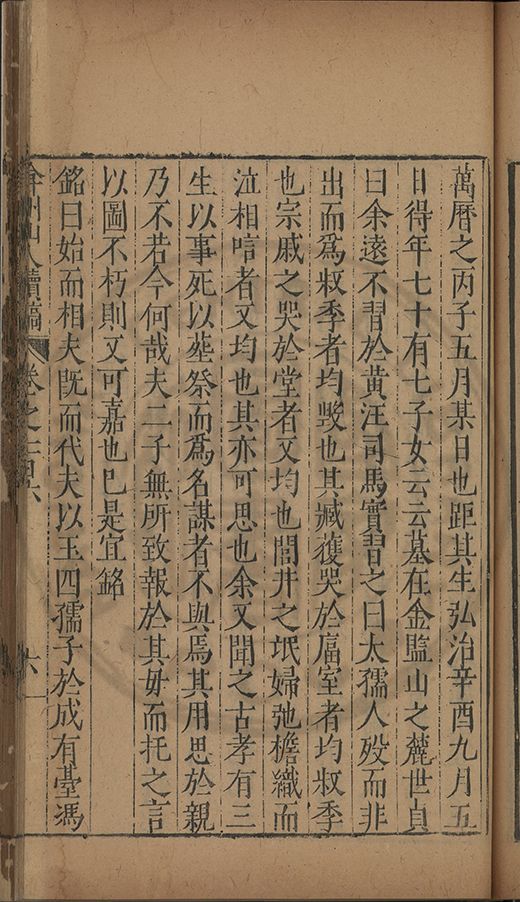 萬曆之丙子五月某日也距其生弘治辛酉九月五
日得年七十有七子女云云墓在金監山之麓世貞
曰余遠不習於黃汪司馬實習之曰太孺人歿而非
出而為叔季者均毀也其臧獲哭於廧室者均叔季
也宗戚之哭於堂者又均也閭井之氓婦弛檐織而
泣相唁者又均也其亦可思也余又聞之古孝有三
生以事死以塟祭而為名謀者不與焉其用思於親
乃不若今何哉夫二子無所致報於其毋而托之言
以圖不朽則又可嘉也已是宜銘
銘曰始而相夫旣而代夫以玉四孺子於成有臺馮
弇州山人續稿 卷之一百六 六